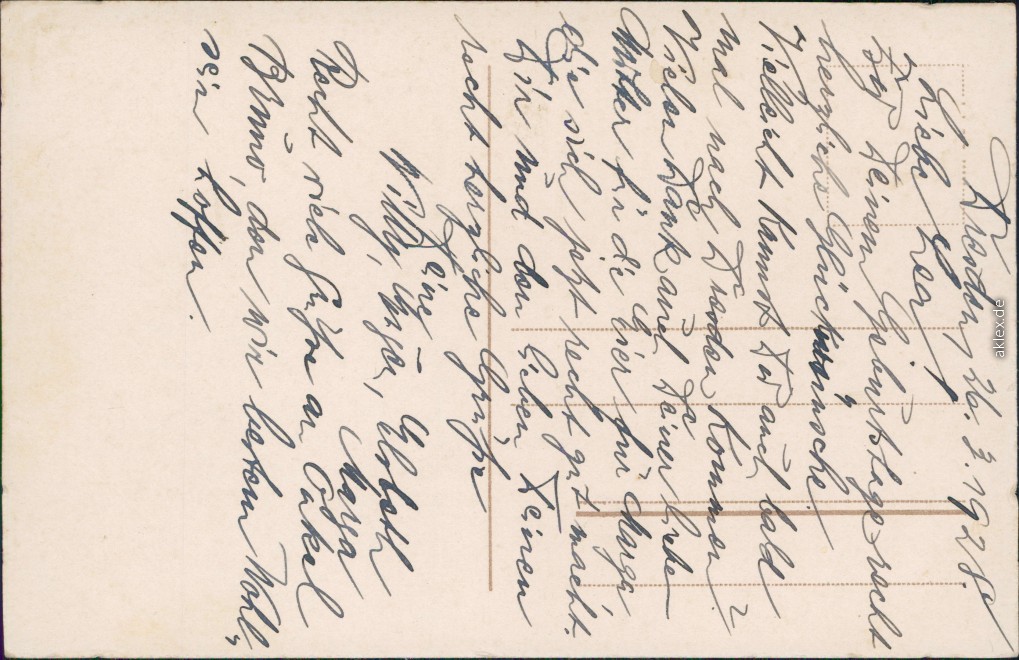 Dresden, 26.3.1928.
Liebe Lea!
Zu Deinem Geburtstage recht
herzliche Glückwünsche.
Vielleicht kannst Du auch bald
mal nach Dresden kommen?
Vielen Dank auch Deiner liebe
Mutter für die Eier für Marga
die sich jetzt recht gut macht.
Dir und den lieben Deinen
recht herzliche Grüße
Deine
Willy, Elsbeth
Marga
Recht viele Grüße an Onkel
Bruno, den wir bestem Wohl„
sein hoffen.
aklex.de